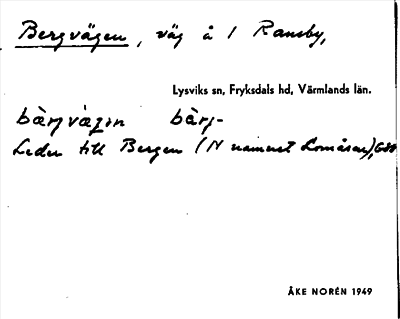 Bergvägen, väg å 1 Ransby,
Lysviks sn, Fryksdals hd, Värmlands län.
bærjvægen bærj-
Leder till Bergen (N namnet Lomåsen),
ÅKE NORÉN 1949